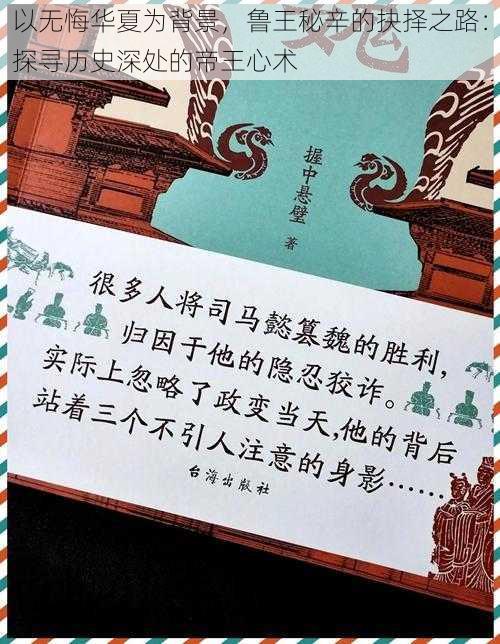 以无悔华夏为背景，鲁王秘辛的抉择之路：
探寻历史深处的帝王心术
握中悬璧 著
很多人将司马懿篡魏的胜利，
归因于他的隐忍狡诈。
实际上忽略了政变当天，他的背后
站着三个不引人注意的身影……
台海出版社